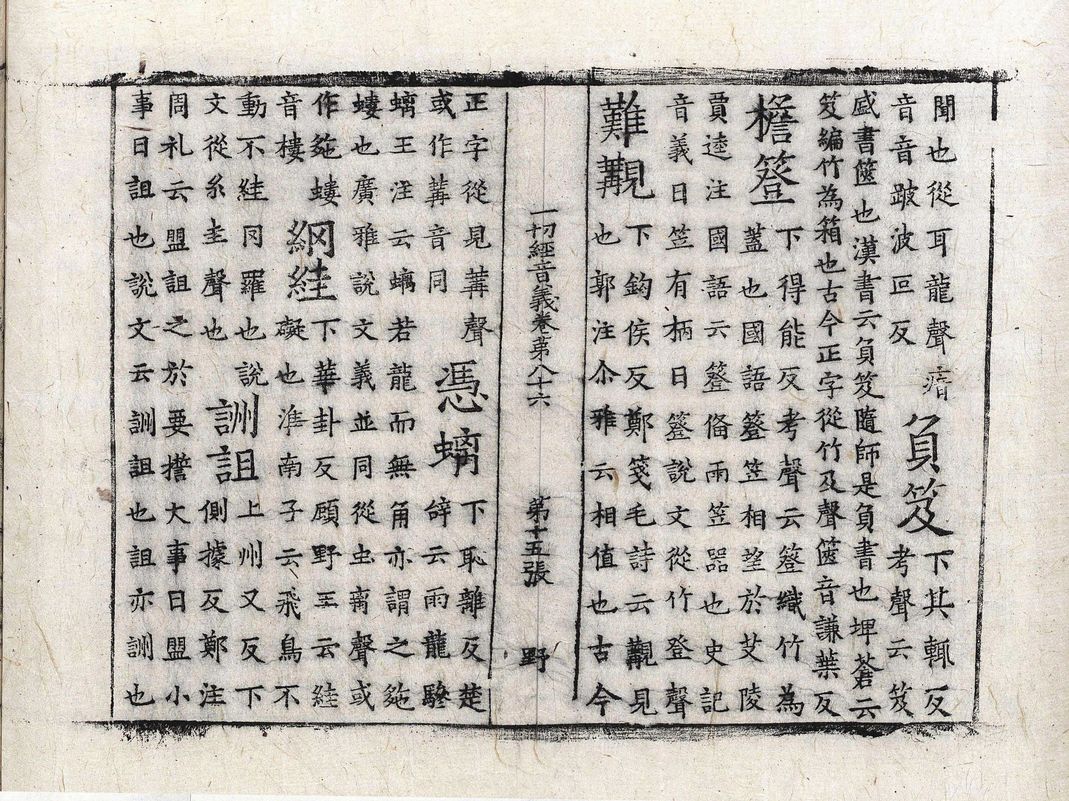 聞也從耳龍聲瘖
音音跛波叵反
負笈
下其輒反
考聲云笈
盛書篋也漢書云負笈隨師是負書也埤蒼云
笈編竹為箱也古今正字從竹及聲篋音謙葉反
檐簦
下得能反考聲云簦織竹為
蓋也國語簦笠相望於艾陵
賈逵注國語云簦俻雨笠器也史記
音義曰笠有柄曰簦說文從竹登聲
難覯
下鉤侯反鄭箋毛詩云覯見
也郭注尒雅云相值也古今
一切經音義卷第八十六
第十五張
野
正字從見冓聲
或作冓音同
憑螭
下恥離反楚
辝云雨龍驂
螭王注云螭若龍而無角亦謂之虵
螻也廣雅說文義並同從虫离聲或
作虵螻
音樓
網絓
下華卦反顧野王云絓
礙也淮南子云飛鳥不
動不絓罔羅也說
文從糸圭聲也
詶詛
上州又反下
側據反鄭注
周礼云盟詛之於要誓大事曰盟小
事曰詛也說文云詶詛也詛亦詶也